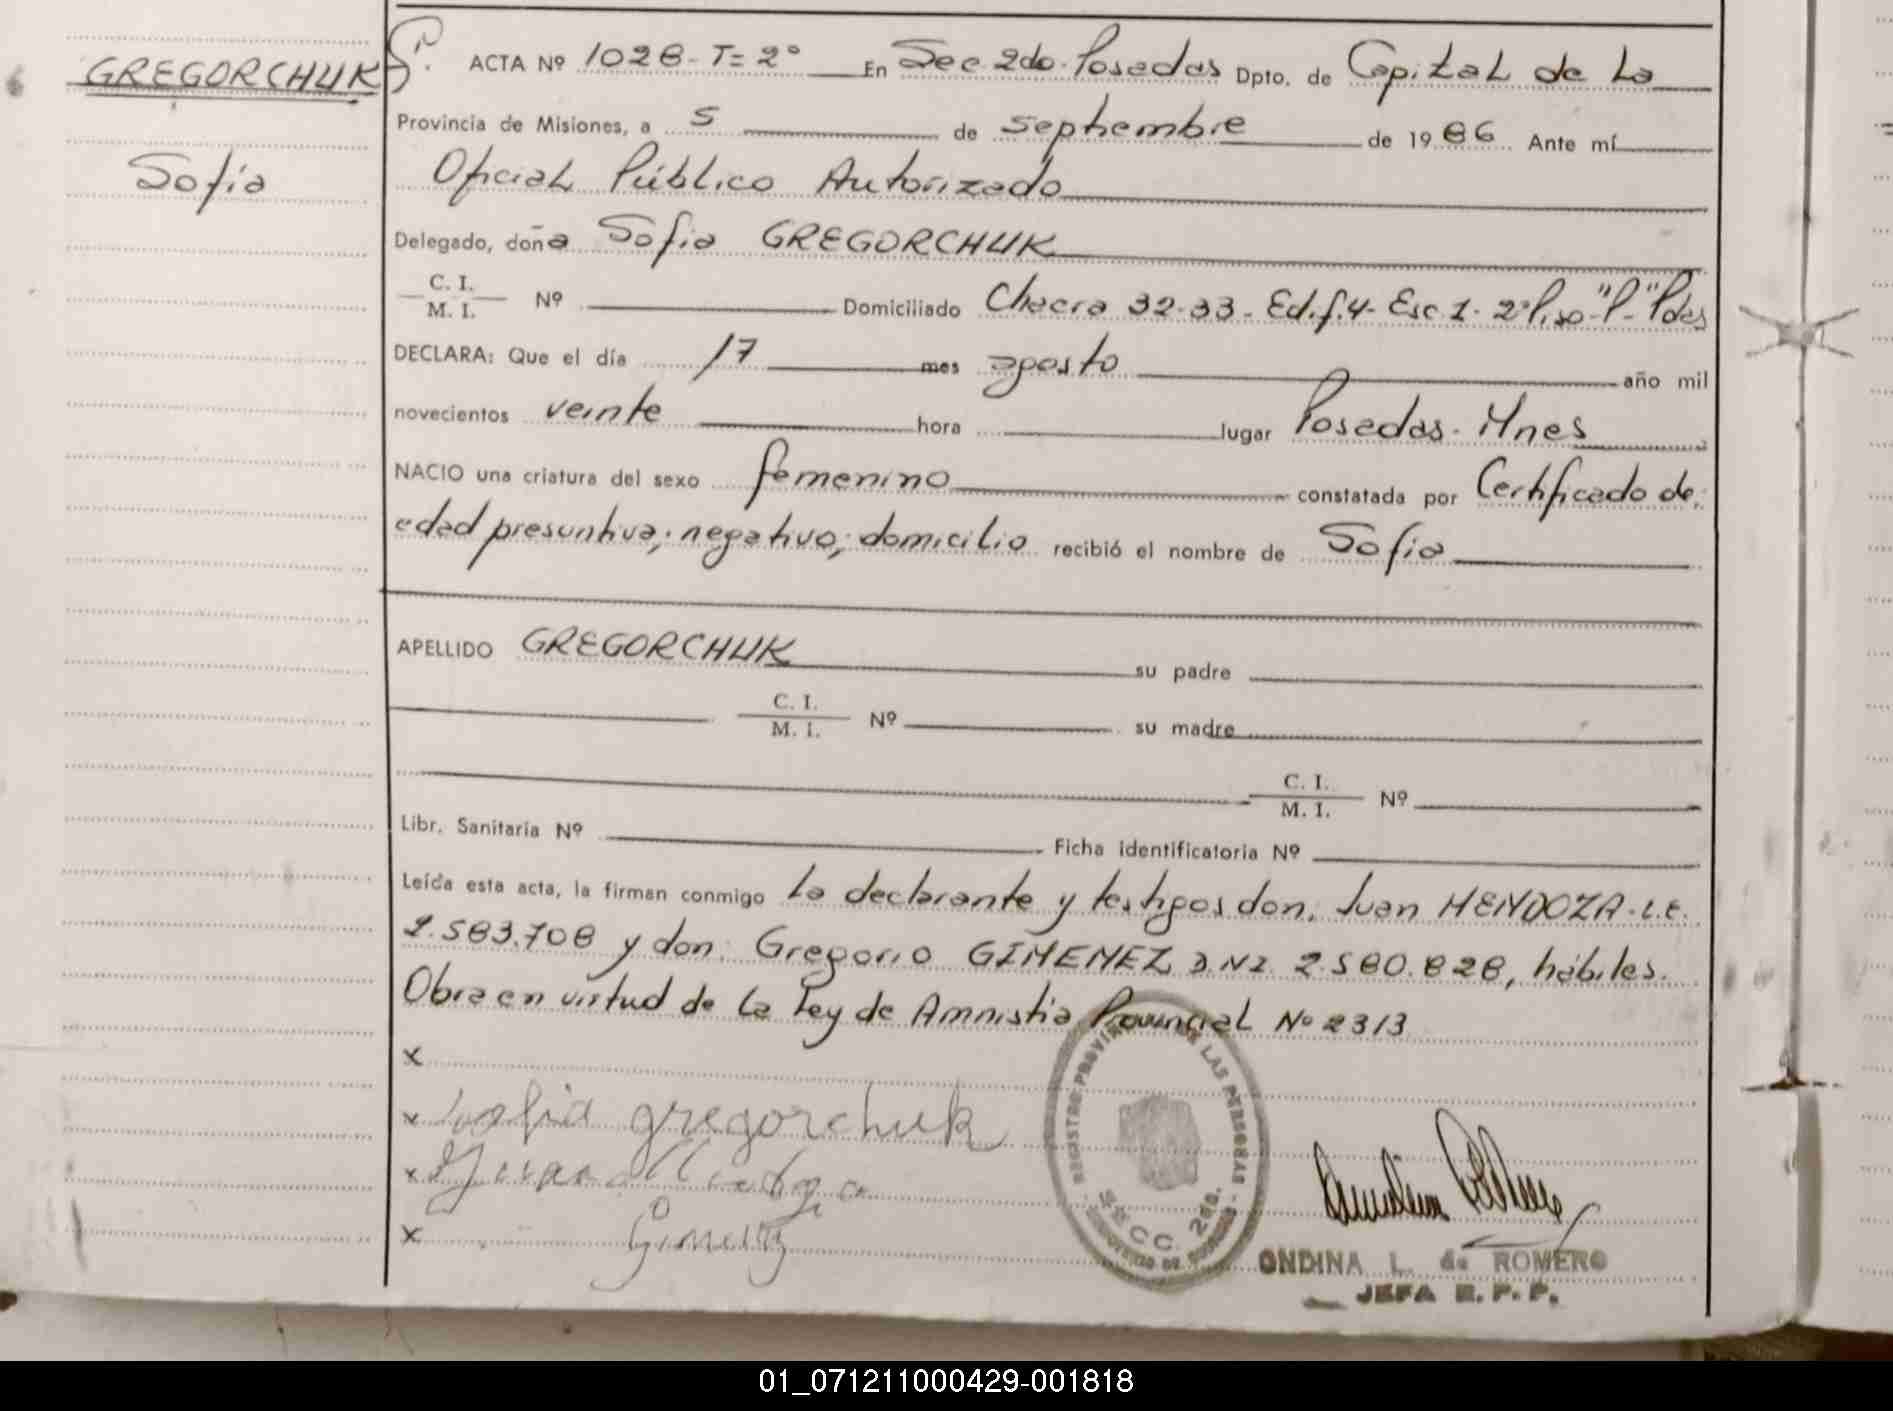 GREGORCHUK
Sofia
ACTA Nº 1028 - T= 2° En Sec 2do. Posadas Dpto. de Capital de La
Provincia de Misiones, a 5 de septiembre de 1986 Ante mí
Oficial Público Autorizado
Delegado, doña Sofia GREGORCHUK
C. I.
M. I. Nº Domiciliado Chacra 32-33 - Edif. 4 - Esc 1 - 2° Piso - "P" - Pdas
DECLARA: Que el día 17 mes agosto año mil
novecientos veinte hora lugar Posadas - Mnes
NACIO una criatura del sexo femenino constatada por Certificado de
edad presuntiva; negativo; domicilio recibió el nombre de Sofia
APELLIDO GREGORCHUK su padre
C. I.
M. I. Nº su madre
C. I.
M. I. Nº
Libr. Sanitaria Nº Ficha identificatoria Nº
Leída esta acta, la firman conmigo La declarante y testigos don: Juan MENDOZA - L.E.
2.583.708 y don: Gregorio GIMENEZ DNI 2.580.828, hábiles.
Obra en virtud de la Ley de Amnistia Provincial Nº 2313
x
x Sofia gregorchuk
x Juan
x Gimenez
REGISTRO PROVINCIAL DE LAS PERSONAS
SECC. 2da.
ONDINA L. de ROMERO
JEFA R. P. P.
01_071211000429-001818